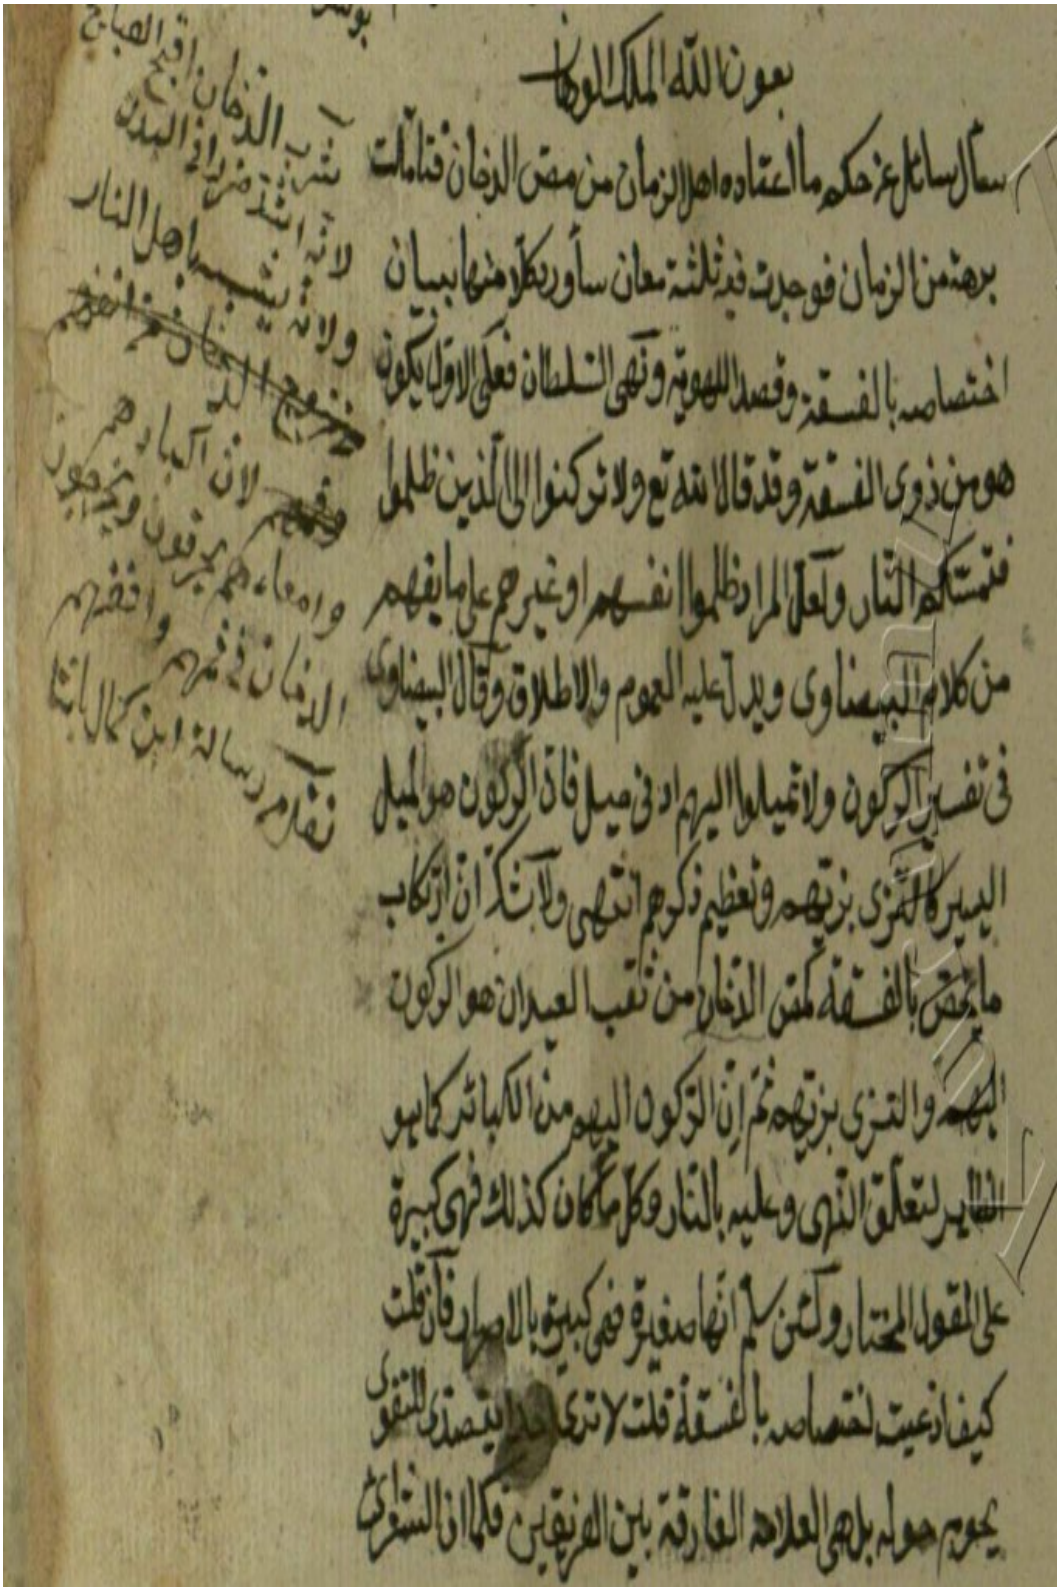 بعون الله الملك الوهاب
سأل سائل عن حكم ما اعتاده اهل الزمان من مص الدخان فتأملت
برهة من الزمان فوجدت فيه ثلثة معان سأورد كلا منها ببيان
اختصاصه بالفسقة وقصد اللهوية ونهى السلطان فعلى الاول يكون
هو من ذوى الفسقة وقد قال الله تع ولا تركنوا الى الذين ظلموا
فتمسكم النار ولعل المراد ظلموا انفسهم او غيرهم على ما يفهم
من كلام البيضاوى ويدل عليه العموم والاطلاق وقال البيضاوى
فى تفسير الركون ولا تميلوا اليهم ادنى ميل فان الركون هو الميل
اليسير كالتزى بزيهم وتعظيم ذكرهم انتهى ولا شك ان ارتكاب
ما يختص بالفسقة كمص الدخان من ثقب العيدان هو الركون
اليهم والتزى بزيهم ثم ان الركون اليهم من الكبائر كما هو
الظاهر لتعلق النهى وعليه بالنار وكل ما كان كذلك فهى كبيرة
على القول المختار ولئن سلم انها صغيرة فهى كبيرة بالاصرار فان قلت
كيف ادعيت اختصاصه بالفسقة قلت لا ترى احدا يتصدى للتقوى
يحوم حوله بل هى العلامة الفارقة بين الفريقين فكما ان
شرب الدخان اقبح القبايح
لانه اشد ضررا فى البدن
ولانه يشبه باهل النار
لان اكبادهم
وامعاءهم يحرقون ويخرجون
الدخان فى فمهم وانفهم
نقل من رسالة ابن كمال باشا